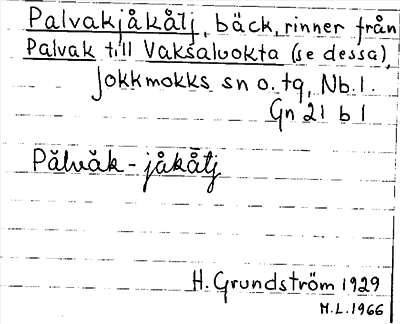 Palvakjåkåtj, bäck, rinner från
Palvak till Vaksaluokta (se dessa),
Jokkmokks sn o. tg, Nb. l.
Gn 21 b 1
Pǎlvǎk - jåkåtj
H. Grundström 1929
M.L. 1966